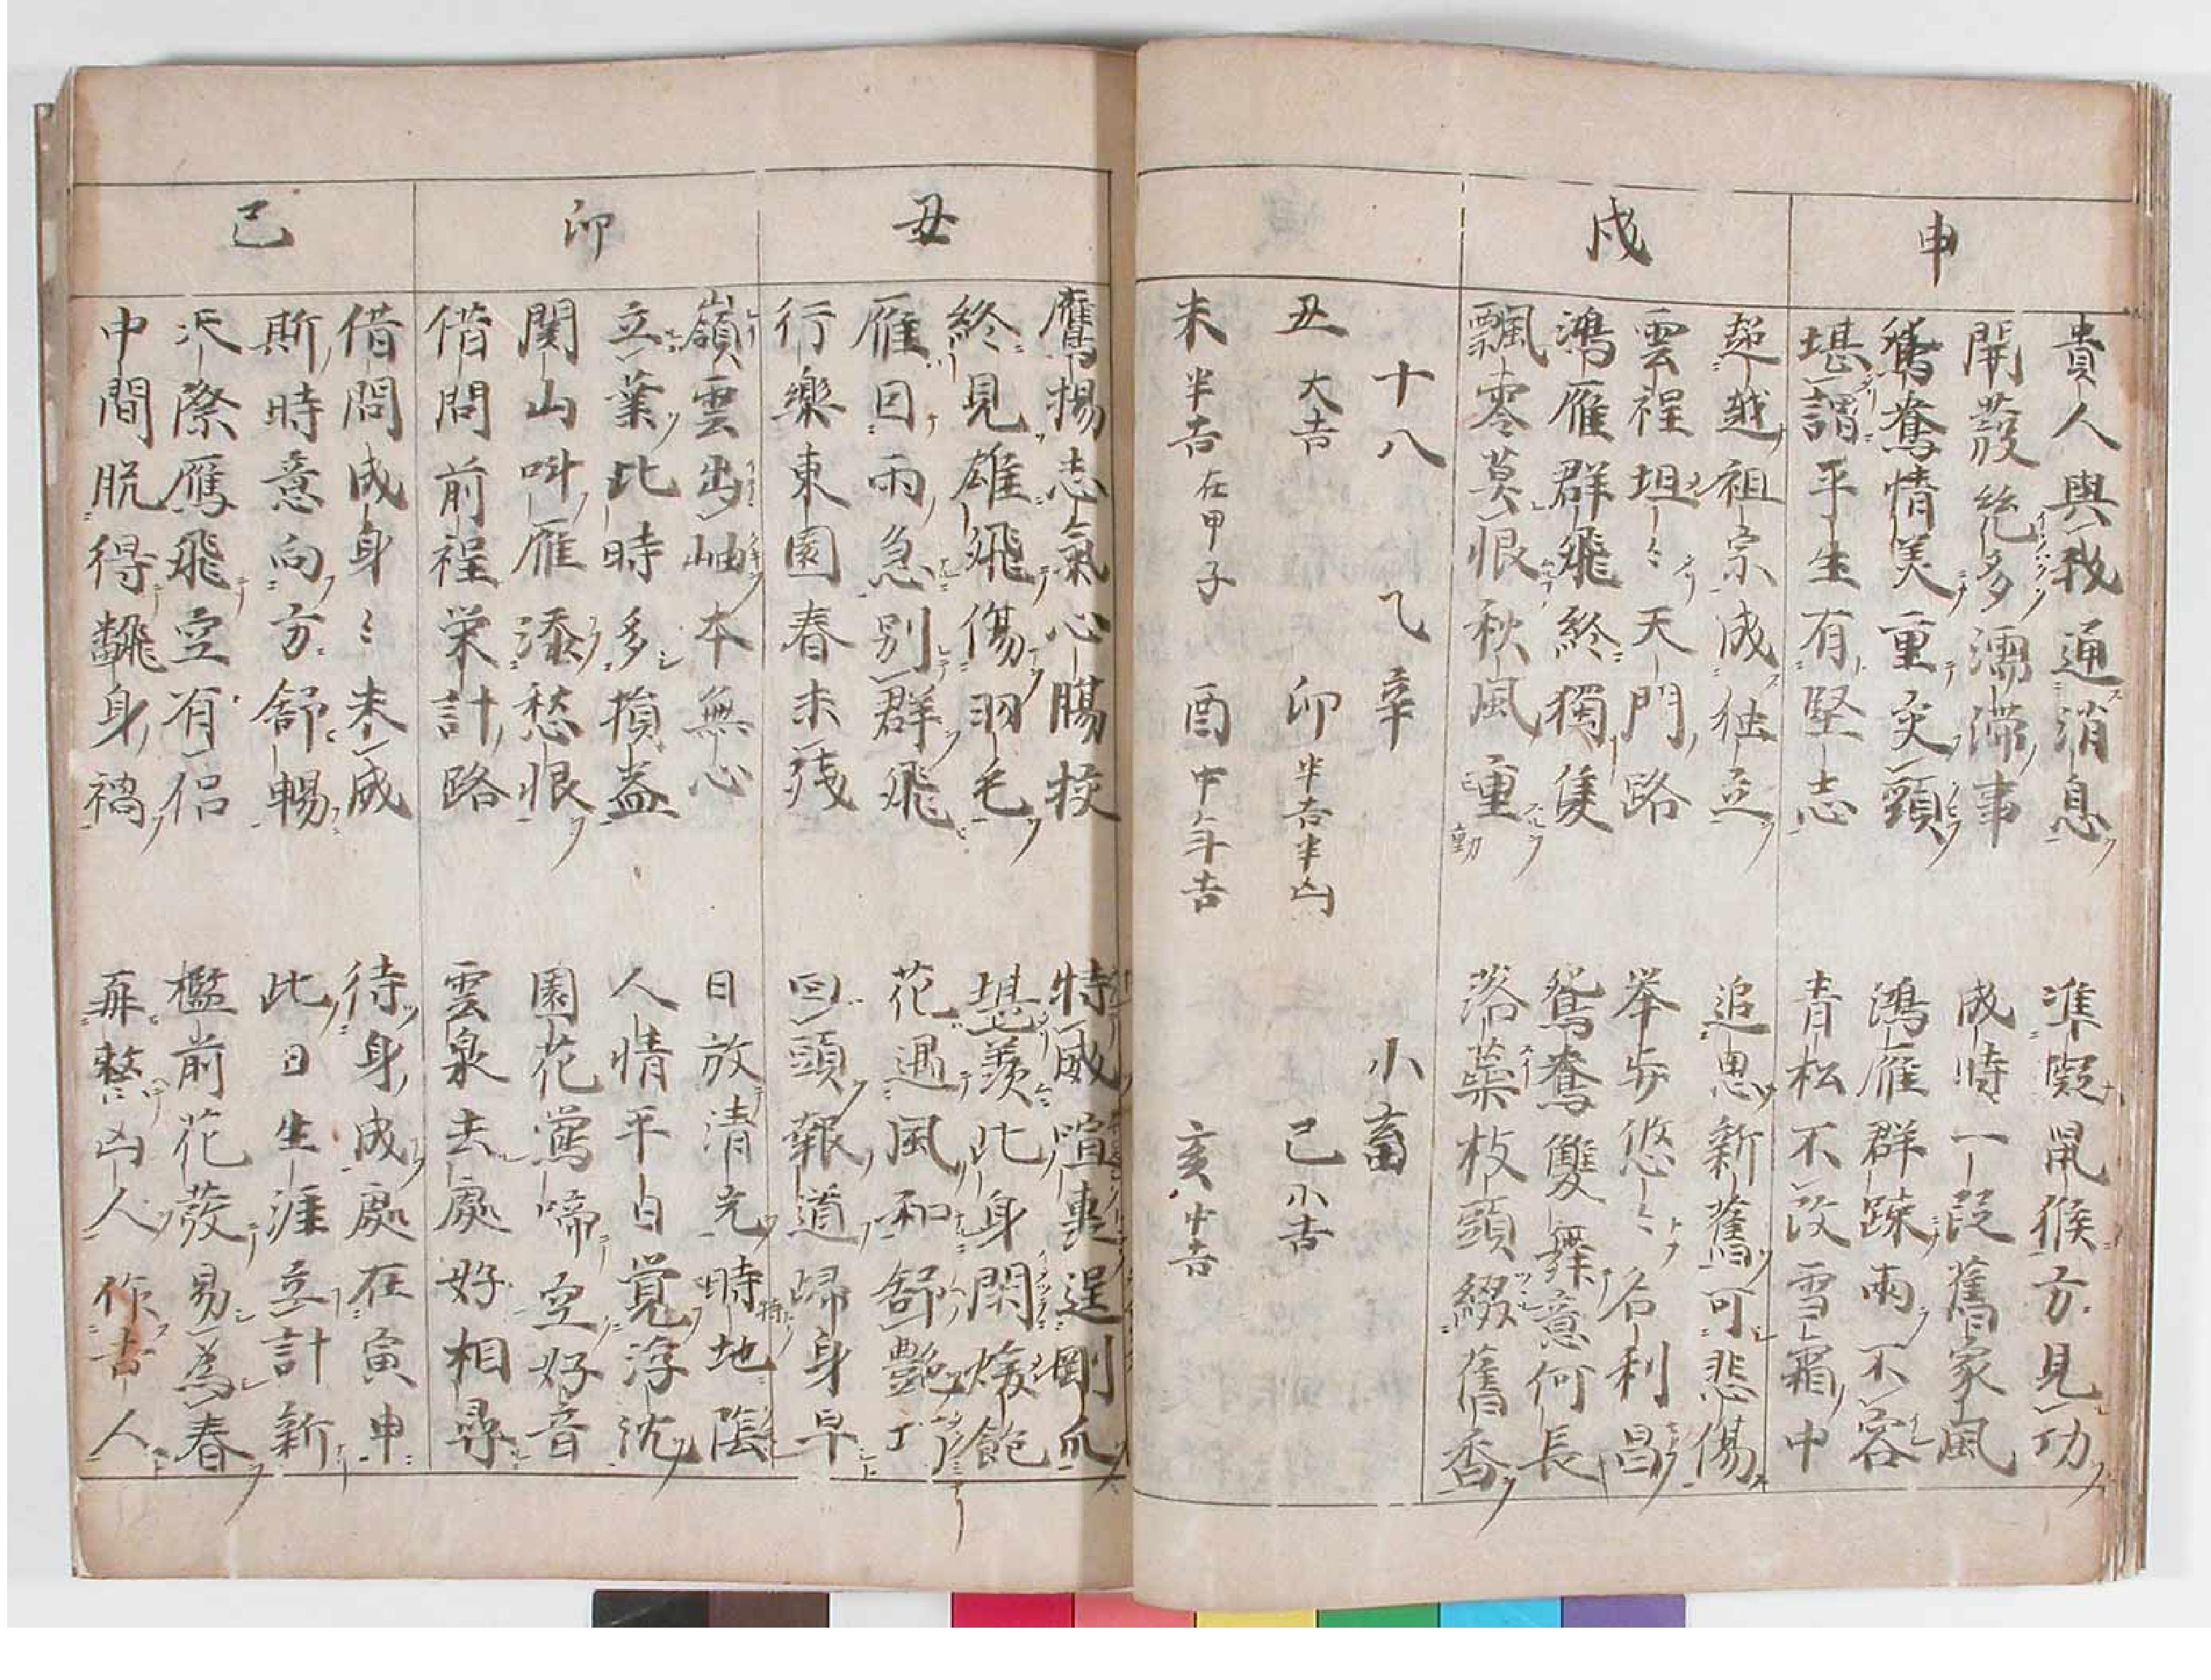 申
貴人與我通消息　準擬鼠猴方見功
開發絶多濡滞事　成時一段舊家風
鴛鴦情美重交頸　鴻雁群踈兩不容
堪謂平生有堅志　青松不改雪霜中
戌
超越祖宗成独立　追思新舊可悲傷
雲程坦〻天門路　举步悠〻名利昌
鴻雁群飛終獨隻　鴛鴦雙舞意何長
飄零莫恨秋風重　落葉枝頭綴舊香
十八　乙　辛　小畜
丑 大吉　卯 半吉半凶　巳 小吉
未 半吉 在甲子　酉 中年吉　亥 中吉
丑
鷹揚志氣心腸授　特威喧裏逞剛爪
終見雄飛傷羽毛　堪羡此身閑煖飽
雁回雨急別群飛　花遇風和舒艷
行樂東園春未残　回頭報道歸身早
卯
嶺雲出岫本無心　日放清光時地陰
立葉比時多損益　人情平白覚浮沈
関山叫雁添愁恨　園花鶯啼空好音
借問前程栄計路　雲泉去處好相尋
巳
借問成身〻未成　待身成處在寅申
斯時意向方舒暢　此日生涯立計新
天際鴈飛空有侶　檻前花發易為春
中間脱得身禍　再整凶人作吉人